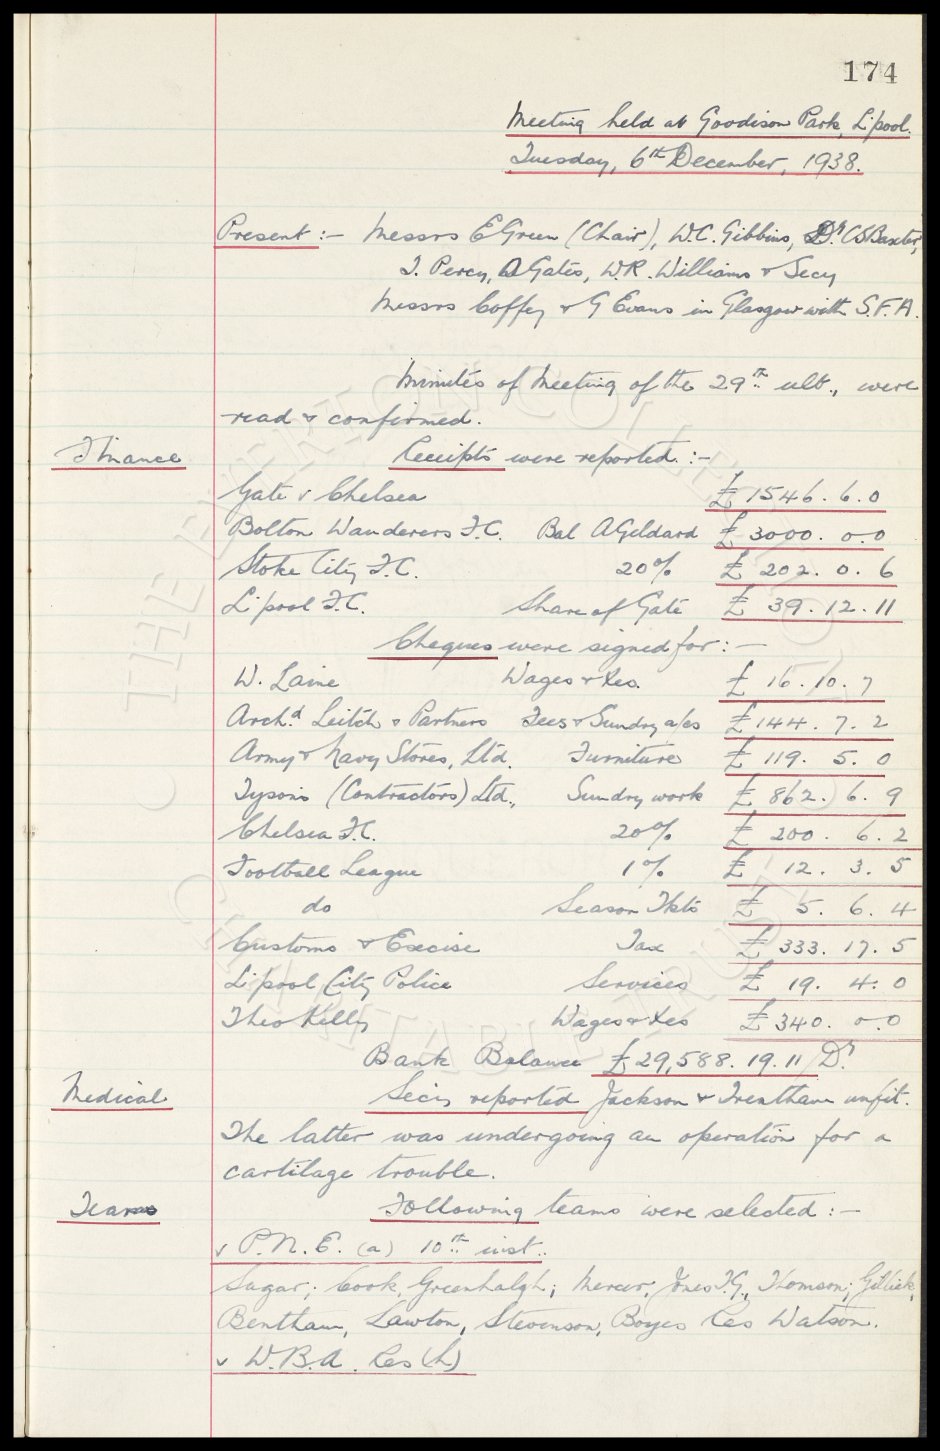 174
Meeting held at Goodison Park, L'pool.
Tuesday, 6th December, 1938.
Present :- Messrs E Green (Chair), W.C. Gibbins, Dr. CS Baxter,
T. Percy, A Gates, W.R. Williams & Secy
Messrs Coffey & G Evans in Glasgow with S.F.A.
Minutes of Meeting of the 29th ult., were
read & confirmed.
Finance Receipts were reported :-
Gate v Chelsea £ 1546. 6. 0
Bolton Wanderers F.C. Bal A Geldard £ 3000. 0. 0
Stoke City F.C. 20% £ 202. 0. 6
L'pool F.C. Share of Gate £ 39. 12. 11
Cheques were signed for :-
W. Laine Wages & Xes. £ 16. 10. 7
Arch.d Leitch & Partners Fees & Sundry a/cs £ 144. 7. 2
Army & Navy Stores, Ltd. Furniture £ 119. 5. 0
Tysons (Contractors) Ltd., Sundry work £ 862. 6. 9
Chelsea F.C. 20% £ 200. 6. 2
Football League 1% £ 12. 3. 5
do Season Tkts £ 5. 6. 4
Customs & Excise Tax £ 333. 17. 5
L'pool City Police Services £ 19. 4. 0
Theo Kelly Wages & Xes £ 340. 0. 0
Bank Balance £ 29,588. 19. 11 / Dr.
Medical Secy reported Jackson & Trentham unfit.
The latter was undergoing an operation for a
cartilage trouble.
Teams Following teams were selected :-
v P.N.E. (a) 10th inst.
Sagar; Cook, Greenhalgh; Mercer, Jones T.G., Thomson; Gillick,
Bentham, Lawton, Stevenson, Boyes Res Watson.
v W.B.A. Res (h)
THE EVERTON COLLECTION
CHARITABLE TRUST